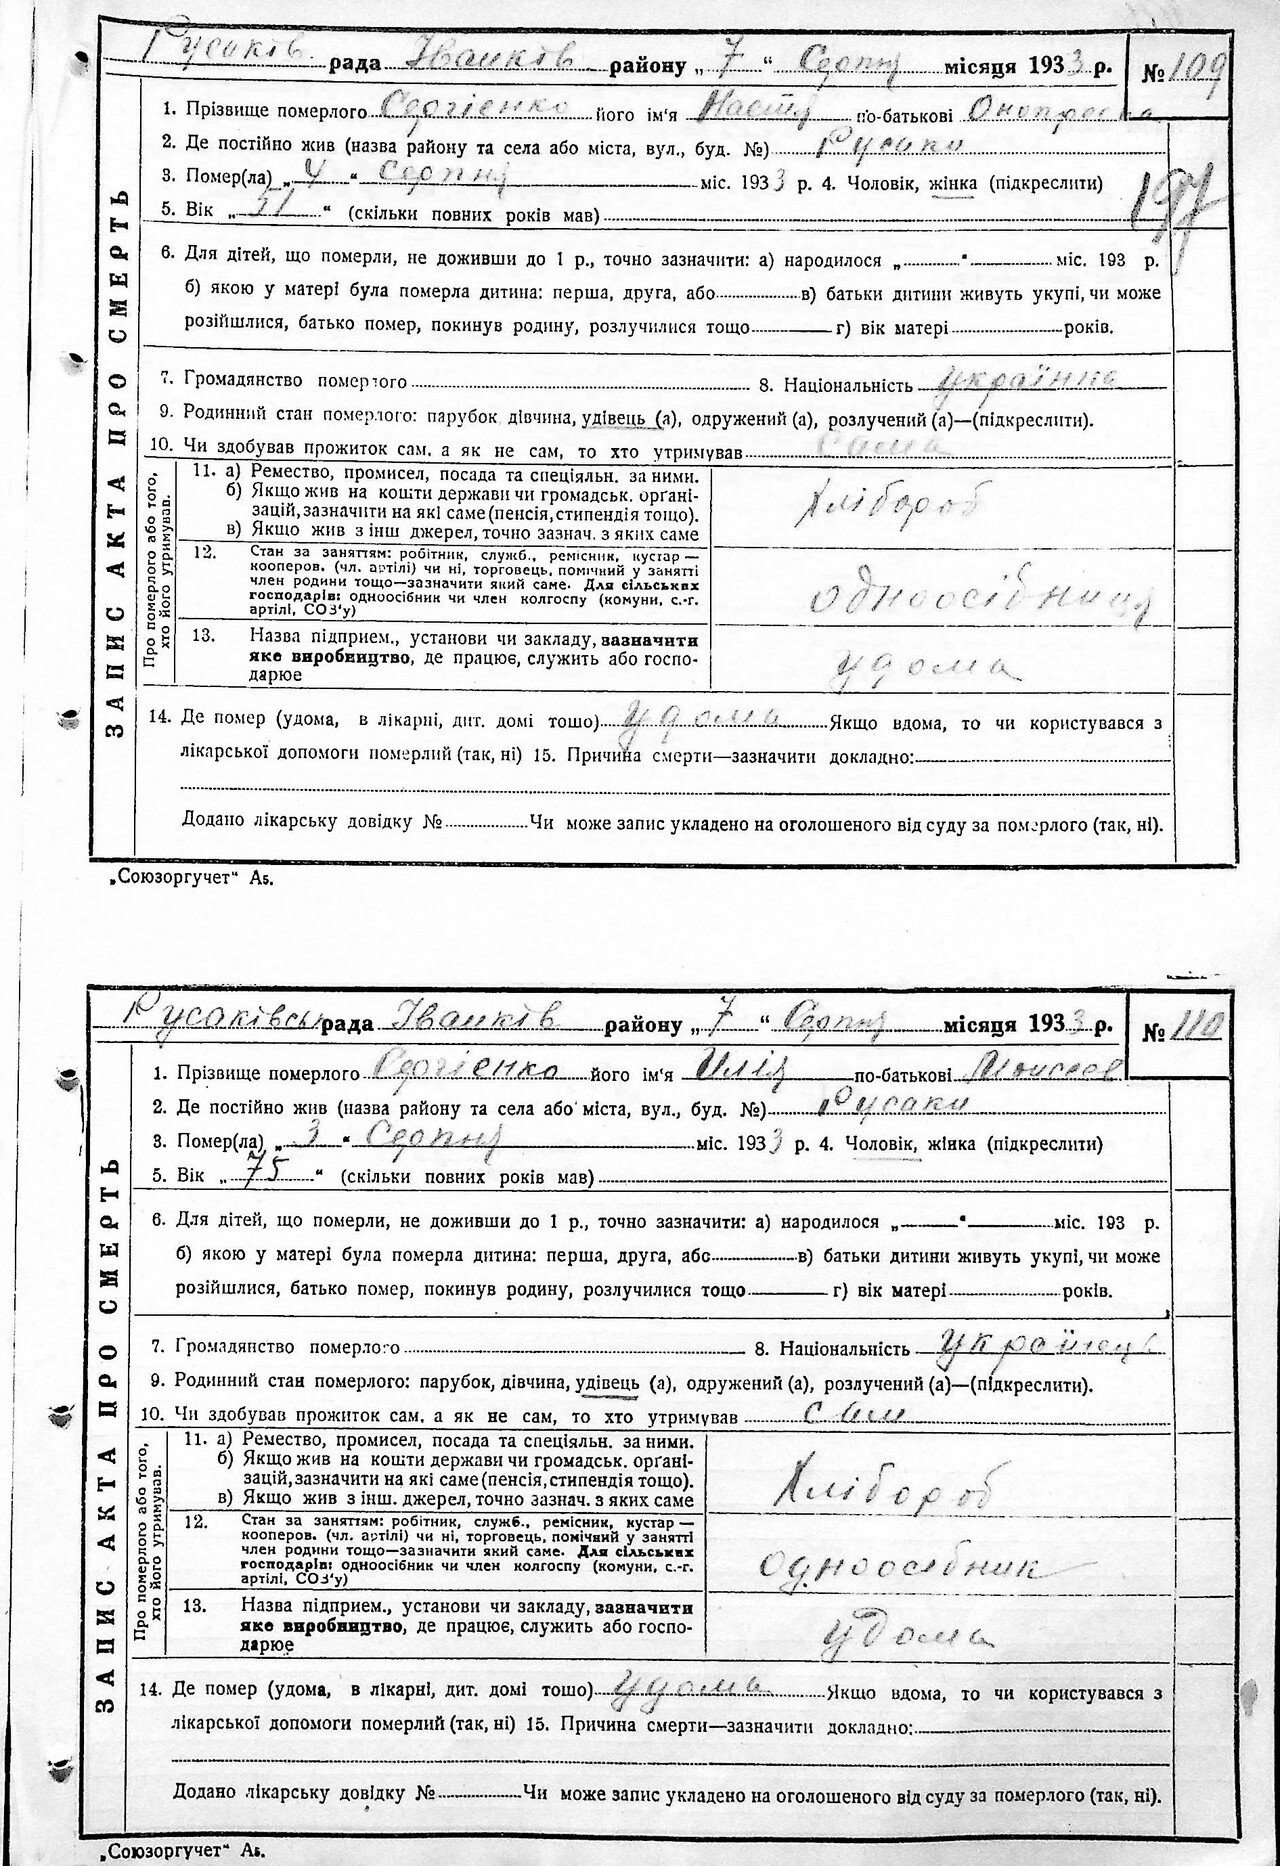 Русаків. рада Іванків. району „ 7 “ Серпня місяця 1933 р. № 109
1. Прізвище померлого Сергієнко його ім'я Настя по-батькові Онопреєвна
2. Де постійно жив (назва району та села або міста, вул., буд. №) Русаки
3. Помер(ла) „ 4 “ Серпня міс. 1933 р. 4. Чоловік, жінка (підкреслити)
197
5. Вік „ 51 “ (скільки повних років мав)
6. Для дітей, що померли, не доживши до 1 р., точно зазначити: а) народилося „ “ міс. 193 р.
б) якою у матері була померла дитина: перша, друга, або в) батьки дитини живуть укупі, чи може
розійшлися, батько помер, покинув родину, розлучилися тощо г) вік матері років.
7. Громадянство померлого 8. Національність українка
9. Родинний стан померлого: парубок, дівчина, удівець (а), одружений (а), розлучений (а)—(підкреслити).
10. Чи здобував прожиток сам, а як не сам, то хто утримував сама
ЗАПИС АКТА ПРО СМЕРТЬ
Про померлого або того,
хто його утримував.
11. а) Ремество, промисел, посада та спеціяльн. за ними.
б) Якщо жив на кошти держави чи громадськ. орґані-
зацій, зазначити на які саме (пенсія, стипендія тощо).
в) Якщо жив з інш джерел, точно зазнач. з яких саме
Хлібороб
12. Стан за заняттям: робітник, служб., ремісник, кустар—
кооперов. (чл. артілі) чи ні, торговець, помічний у занятті
член родини тощо—зазначити який саме. Для сільських
господарів: одноосібник чи член колгоспу (комуни, с.-г.
артілі, СОЗ'у)
одноосібниця
13. Назва підприєм., установи чи закладу, зазначити
яке виробництво, де працює, служить або госпо-
дарює
удома
14. Де помер (удома, в лікарні, дит. домі тошо) удома Якщо вдома, то чи користувався з
лікарської допомоги померлий (так, ні) 15. Причина смерти—зазначити докладно:
Додано лікарську довідку № Чи може запис укладено на оголошеного від суду за померлого (так, ні).
„Союзоргучет“ А5.
Русаківськ рада Іванків району „ 7 “ Серпня місяця 1933 р. № 110
1. Прізвище померлого Сергієнко його ім'я Илія по-батькові Моисеєв
2. Де постійно жив (назва району та села або міста, вул., буд. №) Русаки
3. Помер(ла) „ 3 “ Серпня міс. 1933 р. 4. Чоловік, жінка (підкреслити)
5. Вік „ 75 “ (скільки повних років мав)
6. Для дітей, що померли, не доживши до 1 р., точно зазначити: а) народилося „ “ міс. 193 р.
б) якою у матері була померла дитина: перша, друга, або в) батьки дитини живуть укупі, чи може
розійшлися, батько помер, покинув родину, розлучилися тощо г) вік матері років.
7. Громадянство померлого 8. Національність українець
9. Родинний стан померлого: парубок, дівчина, удівець (а), одружений (а), розлучений (а)—(підкреслити).
10. Чи здобував прожиток сам, а як не сам, то хто утримував сам
ЗАПИС АКТА ПРО СМЕРТЬ
Про померлого або того,
хто його утримував.
11. а) Ремество, промисел, посада та спеціяльн. за ними.
б) Якщо жив на кошти держави чи громадськ. орґані-
зацій, зазначити на які саме (пенсія, стипендія тощо).
в) Якщо жив з інш. джерел, точно зазнач. з яких саме
Хлібороб
12. Стан за заняттям: робітник, служб., ремісник, кустар—
кооперов. (чл. артілі) чи ні, торговець, помічний у занятті
член родини тощо—зазначити який саме. Для сільських
господарів: одноосібник чи член колгоспу (комуни, с.-г.
артілі, СОЗ'у)
одноосібник
13. Назва підприєм., установи чи закладу, зазначити
яке виробництво, де працює, служить або госпо-
дарює
удома
14. Де помер (удома, в лікарні, дит. домі тошо) удома Якщо вдома, то чи користувався з
лікарської допомоги померлий (так, ні) 15. Причина смерти—зазначити докладно:
Додано лікарську довідку № Чи може запис укладено на оголошеного від суду за померлого (так, ні).
„Союзоргучет“ А5.